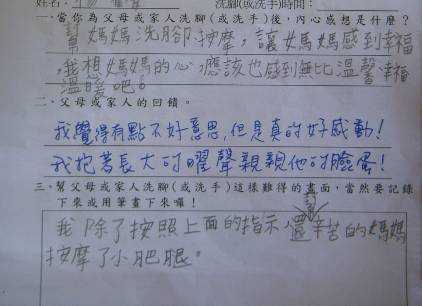 姓名: 洗腳(或洗手)時間:
一、當你為父母或家人洗腳(或洗手)後,內心感想是什麼?
幫媽媽洗腳按摩,讓媽媽感到幸福
,我想媽媽的心,應該也感到無比溫馨幸福
溫暖吧!
二、父母或家人的回饋。
我覺得有點不好意思,但是真的好感動!
我抱著長大的曜聲親親他的臉蛋!
三、幫父母或家人洗腳(或洗手)這樣難得的畫面,當然要記錄
下來或用筆畫下來囉!
我除了按照上面的指示,還幫辛苦的媽媽
按摩了小肥腿。